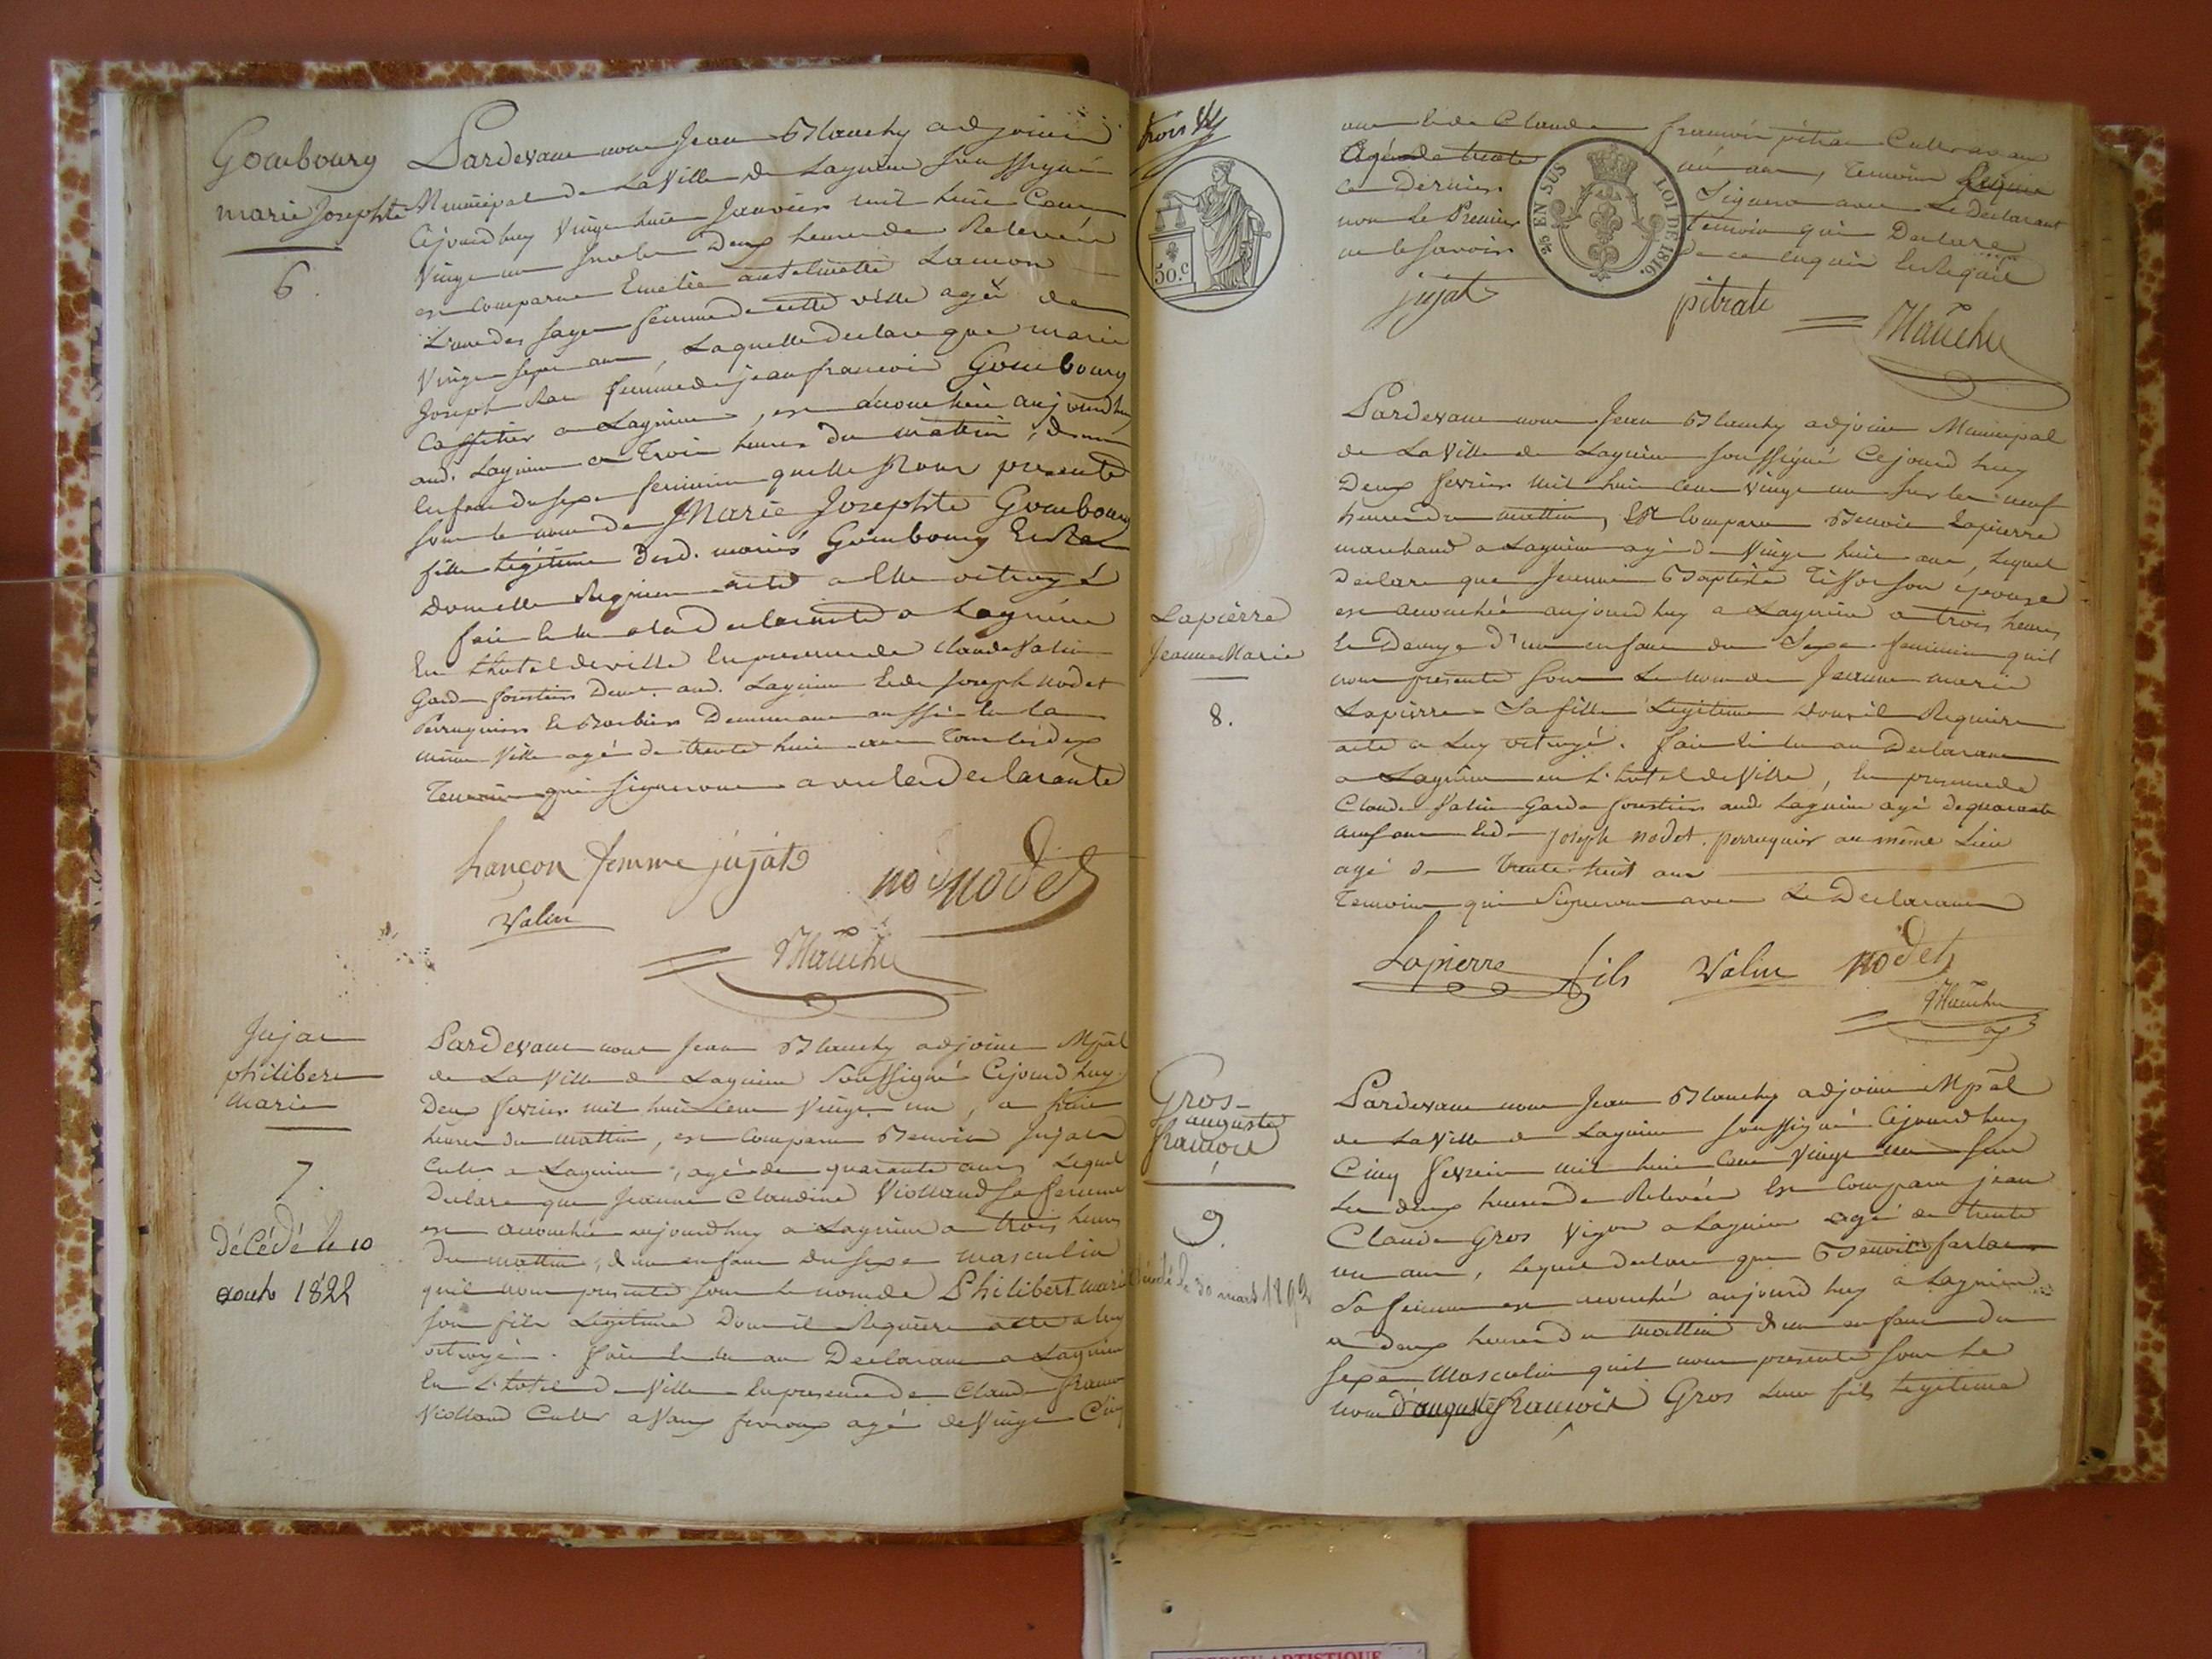 Gombourg
marie Josephte
6.
Pardevant nous Jean Blanchy adjoint
Municipal de La Ville de Lagnieu Soussigné
Cejourdhuy Vingt huit Janvier mil huit Cent
Vingt un Sur les Deux heures de Relevée
est Comparue Lancon
L'une des Sages femmes de cette ville agée de
Vingt Sept ans, Laquelle declare que marie
Joseph femme de jean francois Gombourg
Caffetier a Lagnieu, est accouchée aujourdhuy
aud. Lagnieu a Trois heures du mattin, d'un
Enfant du Sexe feminin quelle Nous presente
Sous le nom de Marie Josephte Gombourg
fille legitime desd. mariés Gombourg Et
Dont elle Requiert acte a Elle octroyé
fait et lu a la declarante a Lagnieu
En L'hotel de ville En presence de Claude Valin
Garde forestier Demt. aud. Lagnieu Et de Joseph Nodet
Perruquier et Barbier Demeurant aussi en la
même Ville agé de trente huit ans Tous les deux
Temoins qui Signeront avec la declarante
Lançon femme jujat
nodet
Valin
Blanchy
Jujat
philibert
Marie
7.
Décédé le 10
août 1822
Pardevant nous Jean Blanchy adjoint Mpal
de La Ville de Lagnieu Soussigné Cejourdhuy
Deux fevrier mil huit Cent Vingt un, a huit
heures du mattin, est Comparu Benoit Jujat
Cultr a Lagnieu, agé de quarante ans Lequel
Declare que Jeanne Claudine Violland Sa femme
est accouchée aujourdhuy a Lagnieu a trois heures
du mattin, d'un enfant du Sexe masculin
quil nous presente Sous le nom de Philibert marie
Son fils Legitime Dont il Requiert acte a luy
octroyé. fait et lu au Declarant a Lagnieu
En L'hotel de Ville En presence de Claude francois
Violland Cultr a Vaux fevroux agé de Vingt Cinq
trois
50.c
ans Et de Claude francois pitrat Cultr
Agé de trente un ans, Temoins
ce Dernier Signera avec Le declarant
non le Premier temoin qui Declare
ne le Savoir de ce enquis Et Requis
¼ EN SUS LOI DE 1816.
jujat
pitrat
Blanchy
Lapierre
Jeanne Marie
8.
Pardevant nous Jean Blanchy adjoint Municipal
de La Ville de Lagnieu Soussigné Cejourdhuy
Deux fevrier mil huit cent vingt un Sur les neuf
heures du mattin, Est Comparu Benoit Lapierre
marchand a Lagnieu agé de Vingt huit ans, Lequel
declare que Jeanne Baptiste Tissot Son épouse
est accouchée aujourdhuy a Lagnieu a trois heures
et Demye d'un enfant du Sexe feminin quil
nous presente Sous Le nom de Jeanne marie
Lapierre Sa fille Legitime dont il Requiert
acte a Luy octroyé. fait et lu au Declarant
a Lagnieu en L'hotel de Ville, En presence de
Claude Valin Garde forestier aud. Lagnieu agé de quarante
neuf ans Et de joseph nodet. perruquier au même Lieu
agé de trente huit ans
Temoins qui Signeront avec Le Declarant
Lapierre fils Valin nodet
Blanchy
Gros
auguste
francois
9.
décédé le 30 mars 1892
Pardevant nous Jean Blanchy adjoint Mpal
de La Ville de Lagnieu Soussigné Cejourdhuy
Cinq fevrier mil huit Cent vingt un Sur
Les deux heures de Relevée Est Comparu jean
Claude Gros Vigon a Lagnieu agé de trente
un ans, Lequel declare que Benoite
Sa femme est accouchée aujourdhuy a Lagnieu
a deux heures du mattin d'un enfant du
Sexe Masculin quil nous presente Sous Le
nom d'auguste francois Gros Leur fils Legitime